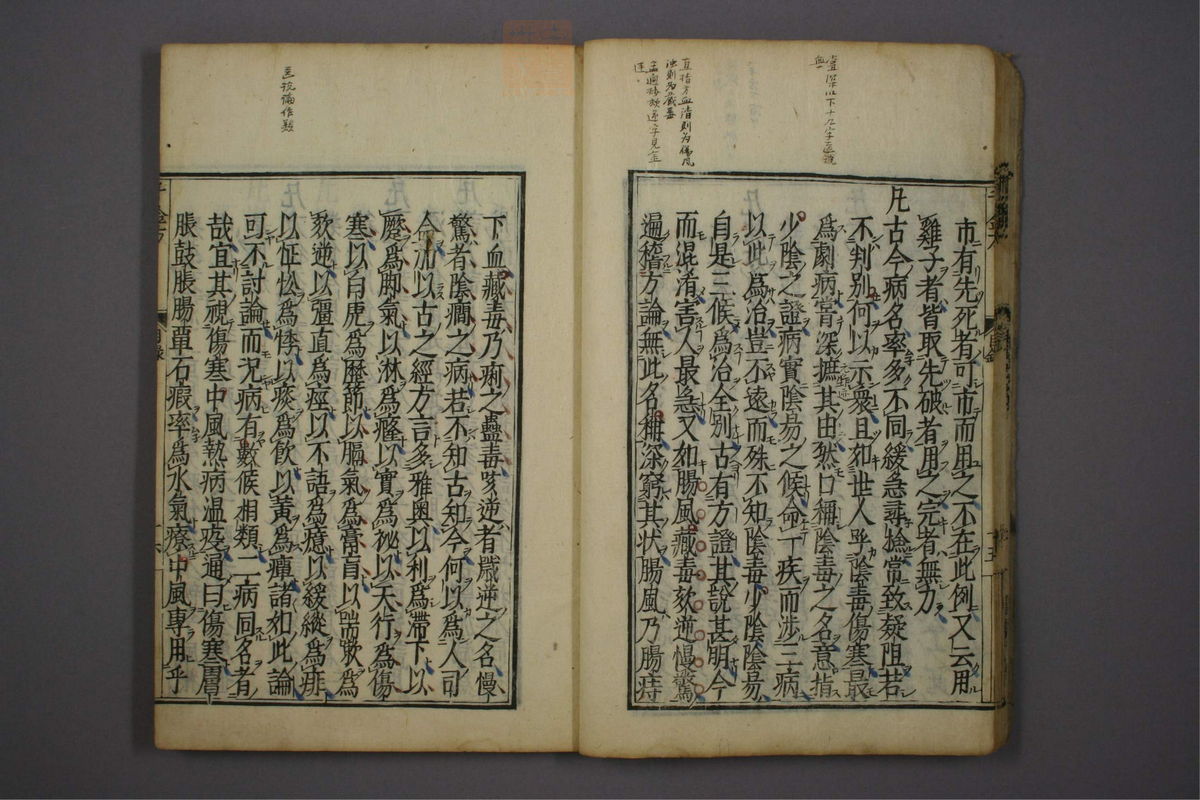 市有先死者可市而用之不在此例又云用
雞子者皆取先破者用之完者無力
凡古今病名率多不同緩急尋撿常致疑阻若
不判别何以示衆且如世人呼陰毒傷寒最
爲劇病嘗深摭其由然口稱陰毒之名意指
少陰之證病實陰昜之候命一疾而渉三病
以此爲治豈不遠而殊不知陰毒少陰陰昜
自是三候爲治全别古有方證其說甚明今
而混淆害人最急又如腸風藏毒欬逆慢驚
遍稽方論無此名稱深窮其状腸風乃腸痔
下血藏毒乃痢之蠱毒欬逆者噦逆之名慢
驚者陰癎之病若不知古知今何以爲人司
命加以古之經方言多雅奥以利爲滯下以
蹷爲脚氣以淋爲癃以實爲祕以天行爲傷
寒以白虎爲歷節以膈氣爲膏肓以喘嗽爲
欬逆以彊直爲痙以不語爲癔以緩縱爲痱
以怔忪爲悸以痰爲飲以黄爲癉諸如此論
可不討論而况病有數候相類二病同名者
哉宜其視傷寒中風熱病温疫通曰傷寒膚
脹鼓脹腸覃石瘕率爲水氣療中風専用乎
目録
十五
直指方血清則為傷風
濁則為藏毒